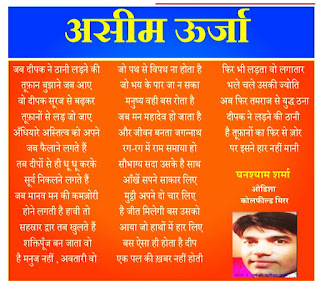 असीम ऊर्जा
जब दीपक ने ठानी लड़ने की
तूफान बुझाने जब आए
वो दीपक सूरज से बढ़कर
तूफानों से लड़ जो जाए
अँधियारे अस्तित्व को अपने
जब फैलाने लगते हैं
तब दीपों से ही धू धू करके
सूर्य निकलने लगते हैं
जब मानव मन की कमज़ोरी
होने लगती है हावी तो
सहस्रार द्वार तब खुलते हैं
शक्तिपूँज बन जाता वो
है मनुज नहीं , अवतारी वो
जो पथ से विपथ ना होता है
जो भय के पार जा न सका
मनुष्य वही बस रोता है
जब मन महादेव हो जाता है
और जीवन बनता जगन्नाथ
रग-रग में राम समाया हो
सौभाग्य सदा उसके है साथ
आँखें सपने साकार लिए
मुट्ठी अपने दो चार लिए
है जीत मिलेगी बस उसको
आया जो हाथों में हार लिए
बस ऐसा ही होता है दीप
एक पल की ख़बर नहीं होती
फिर भी लड़ता वो लगातार
भले चले उसकी ज्योति
अब फिर तमराज से युद्ध ठना
दीपक ने लड़ने की ठानी
है तूफानों का फिर से ज़ोर
पर इसने हार नहीं मानी
घनश्याम शर्मा
ओडिशा
कोलफील्ड मिरर